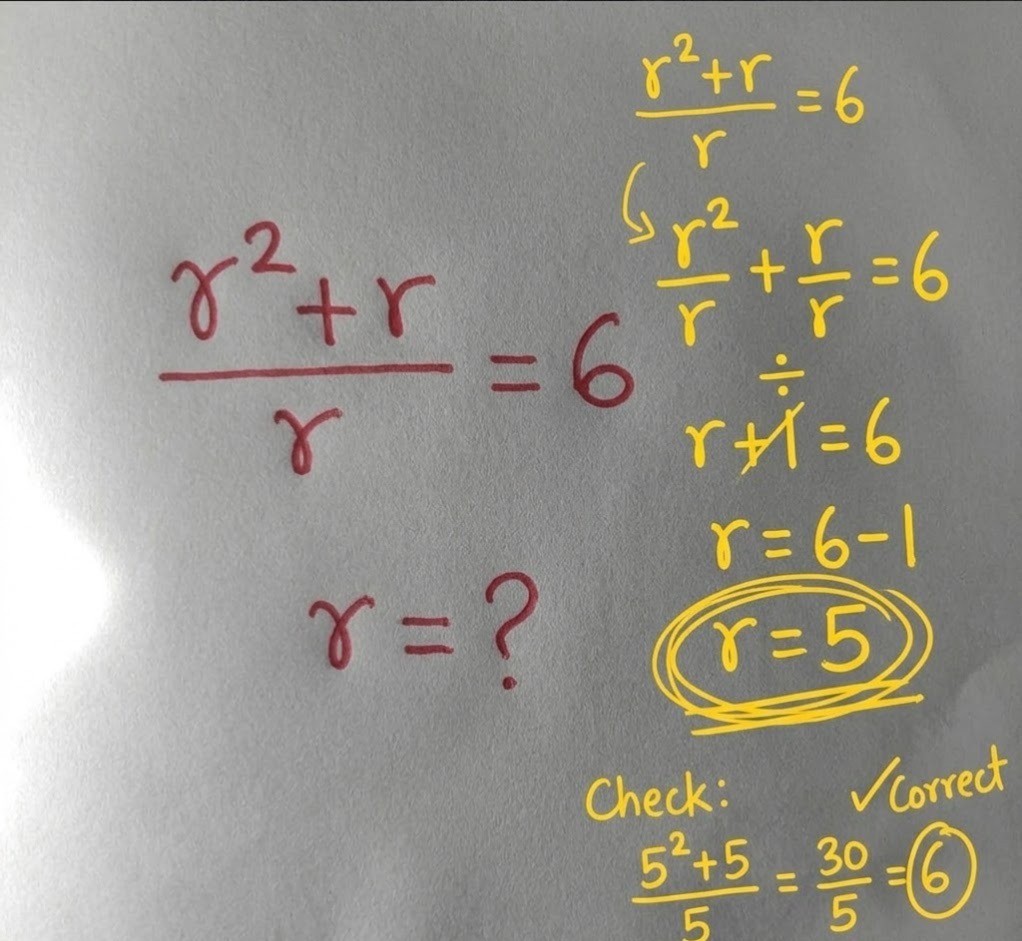 r²+r
/r = 6
r = ?
r²+r
/r = 6
r²/r + r/r = 6
÷
r+1=6
r=6-1
r=5
Check: ✓Correct
5²+5/5 = 30/5 = 6